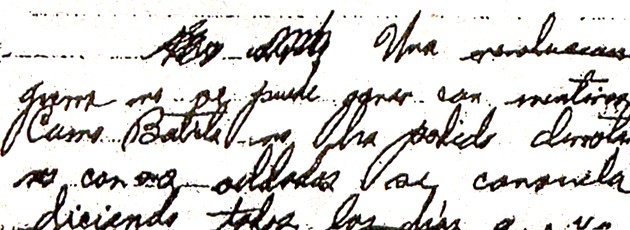 Una revolucion
guerra no se puede ganar con mentiras
Como Batista no ha podido derrota
nos con soldados se consuela
diciendo todos los días q. ya